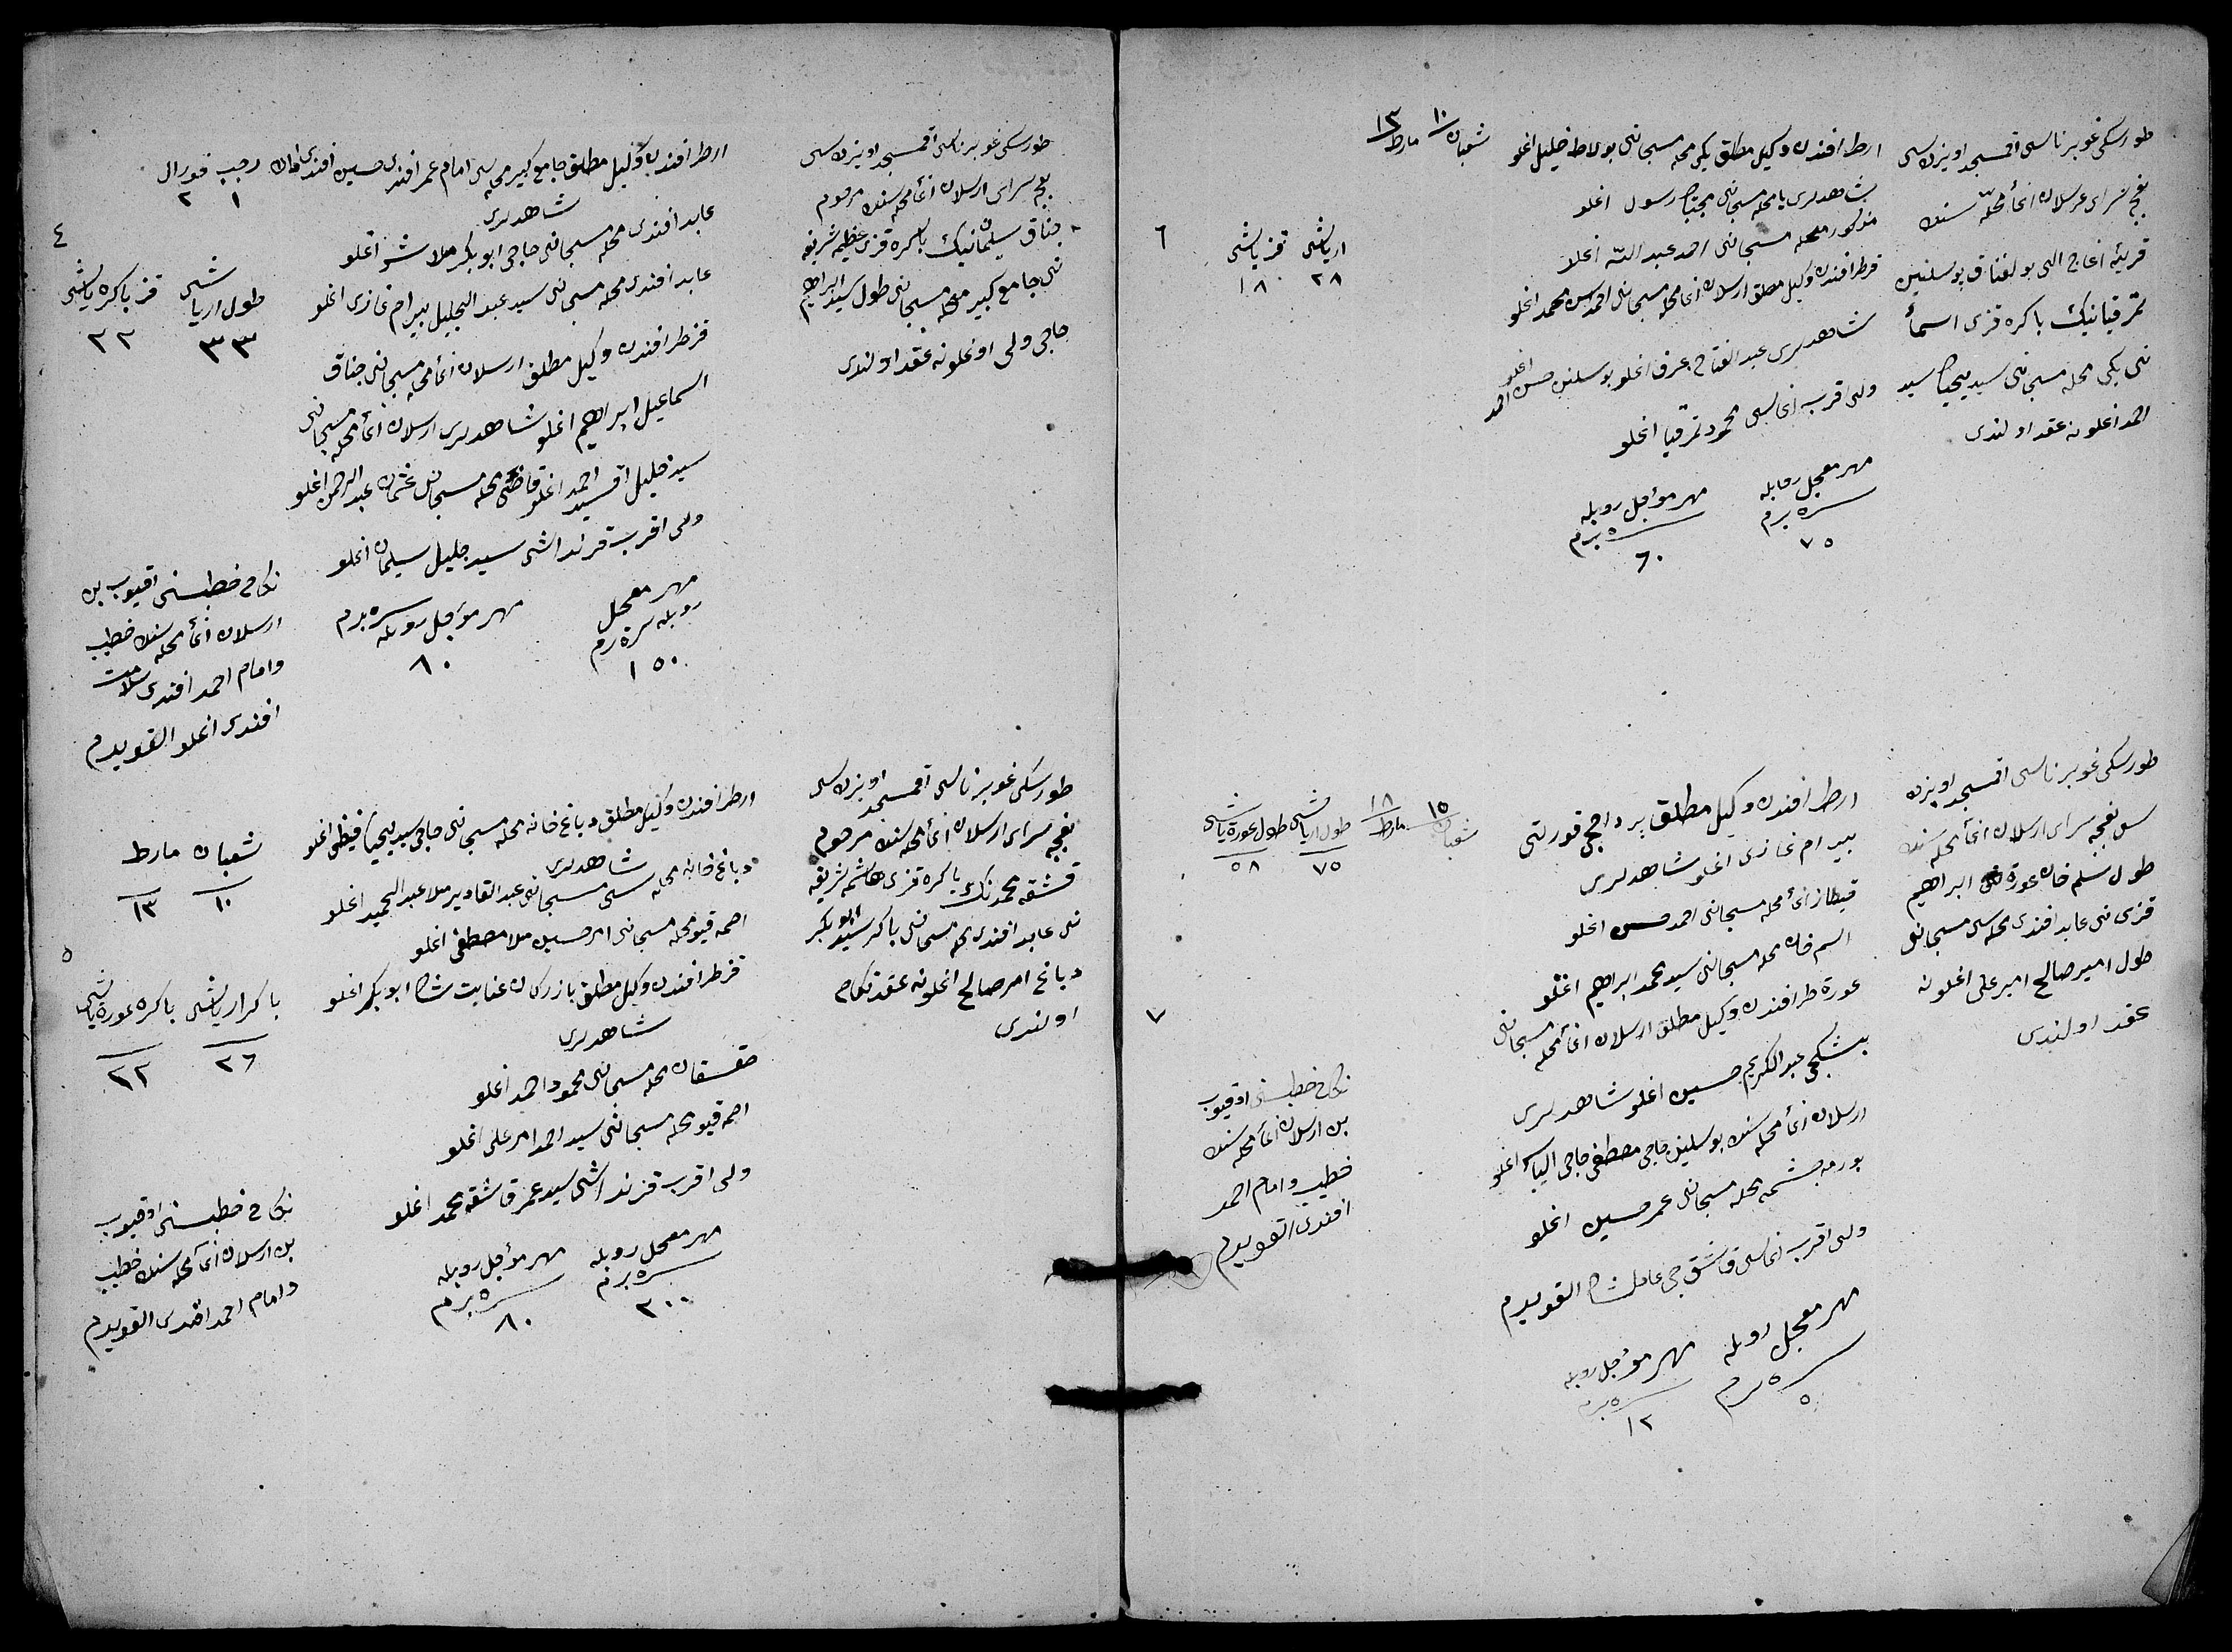 طورسكى غوبرناسى اقمسجد اويزدسى
بغچه سراى ارسلان اغا محله سنده مرحوم
جناق سليمانيك باكره قزى عظيمه شريفه
نى جامع كبير محله مسجانى طول سيد ابراهيم
حاجى ولى اوغلونه عقد اولندى
ارطرافندن وكيل مطلق جامع كبير محله سى امام عمر افندى حسين افندى
شاهدلرى
عابد افندى محله مسجانى حاجى ابوبكر ملا شو اغلو
عابد افندى محله مسجانى سيد عبد الجليل بيرام غازى اغلو
قزطرافندن وكيل مطلق ارسلان اغا محله مسجانى جناق
اسماعيل ابراهيم اغلو شاهدلرى ارسلان اغا محله مسجانى
سيد خليل سيد احمد اغلو قاضى محله مسجانى عثمان عبد الرحمن اغلو
ولى اقرب قرنداشى سيد جليل سليمان اغلو
مهر معجل روبله سره برم
١٥٠
مهر مؤجل روبله سره برم
٨٠
رجب فورال
١ ٢
٤
طول اربياشى
٣٣
قز باكره ياشى
٢٢
نكاح خطبسنى اوقيوب بن
ارسلان اغا محله سنك خطيب
وامام احمد افندى سلامت
افندى اغلو القويدم
طورسكى غوبرناسى اقمسجد اويزدسى
بغچه سراى ارسلان اغا محله سنده مرحوم
قشقه محمدنك باكره قزى هاشمه شريفه
نى عابد افندى محله مسجانى باكر سيد ابوبكر
دباغ امر صالح اغلونه عقد نكاح
اولندى
ارطرافندن وكيل مطلق دباغ خانه محله مسجانى حاجى سيد يحيا اغلو
شاهدلرى
دباغ خانه محله سى مسجانى عبد القادير ملا عبد الحميد اغلو
اصمه قيو محله مسجانى امر حسين ملا مصطفى اغلو
قزطرافندن وكيل مطلق بازركان عنايت شاه ابوبكر اغلو
شاهدلرى
محله مسجانى محمود احمد اغلو
اصمه قيو محله مسجانى سيد احمد امر على اغلو
ولى اقرب قرنداشى سيد عمر قاشقه محمد اغلو
مهر معجل روبله سره برم
٢٠٠
مهر مؤجل روبله سره برم
٨٠
شعبان مارط
١٠ ١٣
٥
باكر ارياشى باكره عورة ياشى
٢٦ ٢٢
نكاح خطبسنى اوقيوب
بن ارسلان اغا محله سنك خطيب
وامام احمد افندى القويدم
طورسكى غوبرناسى اقمسجد اويزدسى
بغچه سراى عرسلان اغا محله سنده
قريه اغاج الى بولغناق بوسلنين
تمرقيانيك باكره قزى اسما
نى يكى محله مسجانى سيد يحيا سيد
احمد اغلونه عقد اولندى
ارطرافندن وكيل مطلق يكى محله مسجانى بولاط خليل اغلو
شاهدلرى يا محله مسجانى مجتبا رسول اغلو
مذكور محله مسجانى احمد عبد الله اغلو
قزطرافندن وكيل مطلق ارسلان اغا محله مسجانى احمد محمد اغلو
شاهدلرى عبد الفتاح عرف اغلو بوسلنين حسن احمد اغلو
ولى اقرب اغاسى محمود تمرقيا اغلو
مهر معجل روبله سره برم
٧٥
مهر مؤجل روبله سره برم
٦٠
شعبان ١٠ مارط ١٣
٦
ارياشى قزياشى
٢٨ ١٨
طورسكى غوبرناسى اقمسجد اويزد
سى بغچه سراى ارسلان اغا محله سنده
طول سلم خان عورة ابراهيم
قزى نى عابد افندى محله سى مسجانى
طول امير صالح امير على اغلونه
عقد اولندى
ارطرافندن وكيل مطلق برداهجى قورتى
بيرام غازى اغلو شاهدلرى
قيطاز اغا محله مسجانى احمد حسن اغلو
اسم خان محله مسجانى سيد محمد ابراهيم اغلو
عورة طرافندن وكيل مطلق ارسلان اغا محله مسجانى
بشكجى عبد الكريم حسين اغلو شاهدلرى
ارسلان اغا محله سنده بوسلنين حاجى مصطفى حاجى الياس اغلو
بورمه چشمه محله مسجانى عمر حسين اغلو
ولى اقرب اغاسى قاشقجى عادل شاه القويدم
مهر معجل روبله سره برم
٥
مهر مؤجل روبله سره برم
١٢
شعبان ١٥ مارط ١٨
طول ارياشى طول عورة ياشى
٧٥ ٥٨
٧
نكاح خطبسنى اوقيوب
بن ارسلان اغا محله سنك
خطيب وامام احمد
افندى القويدم